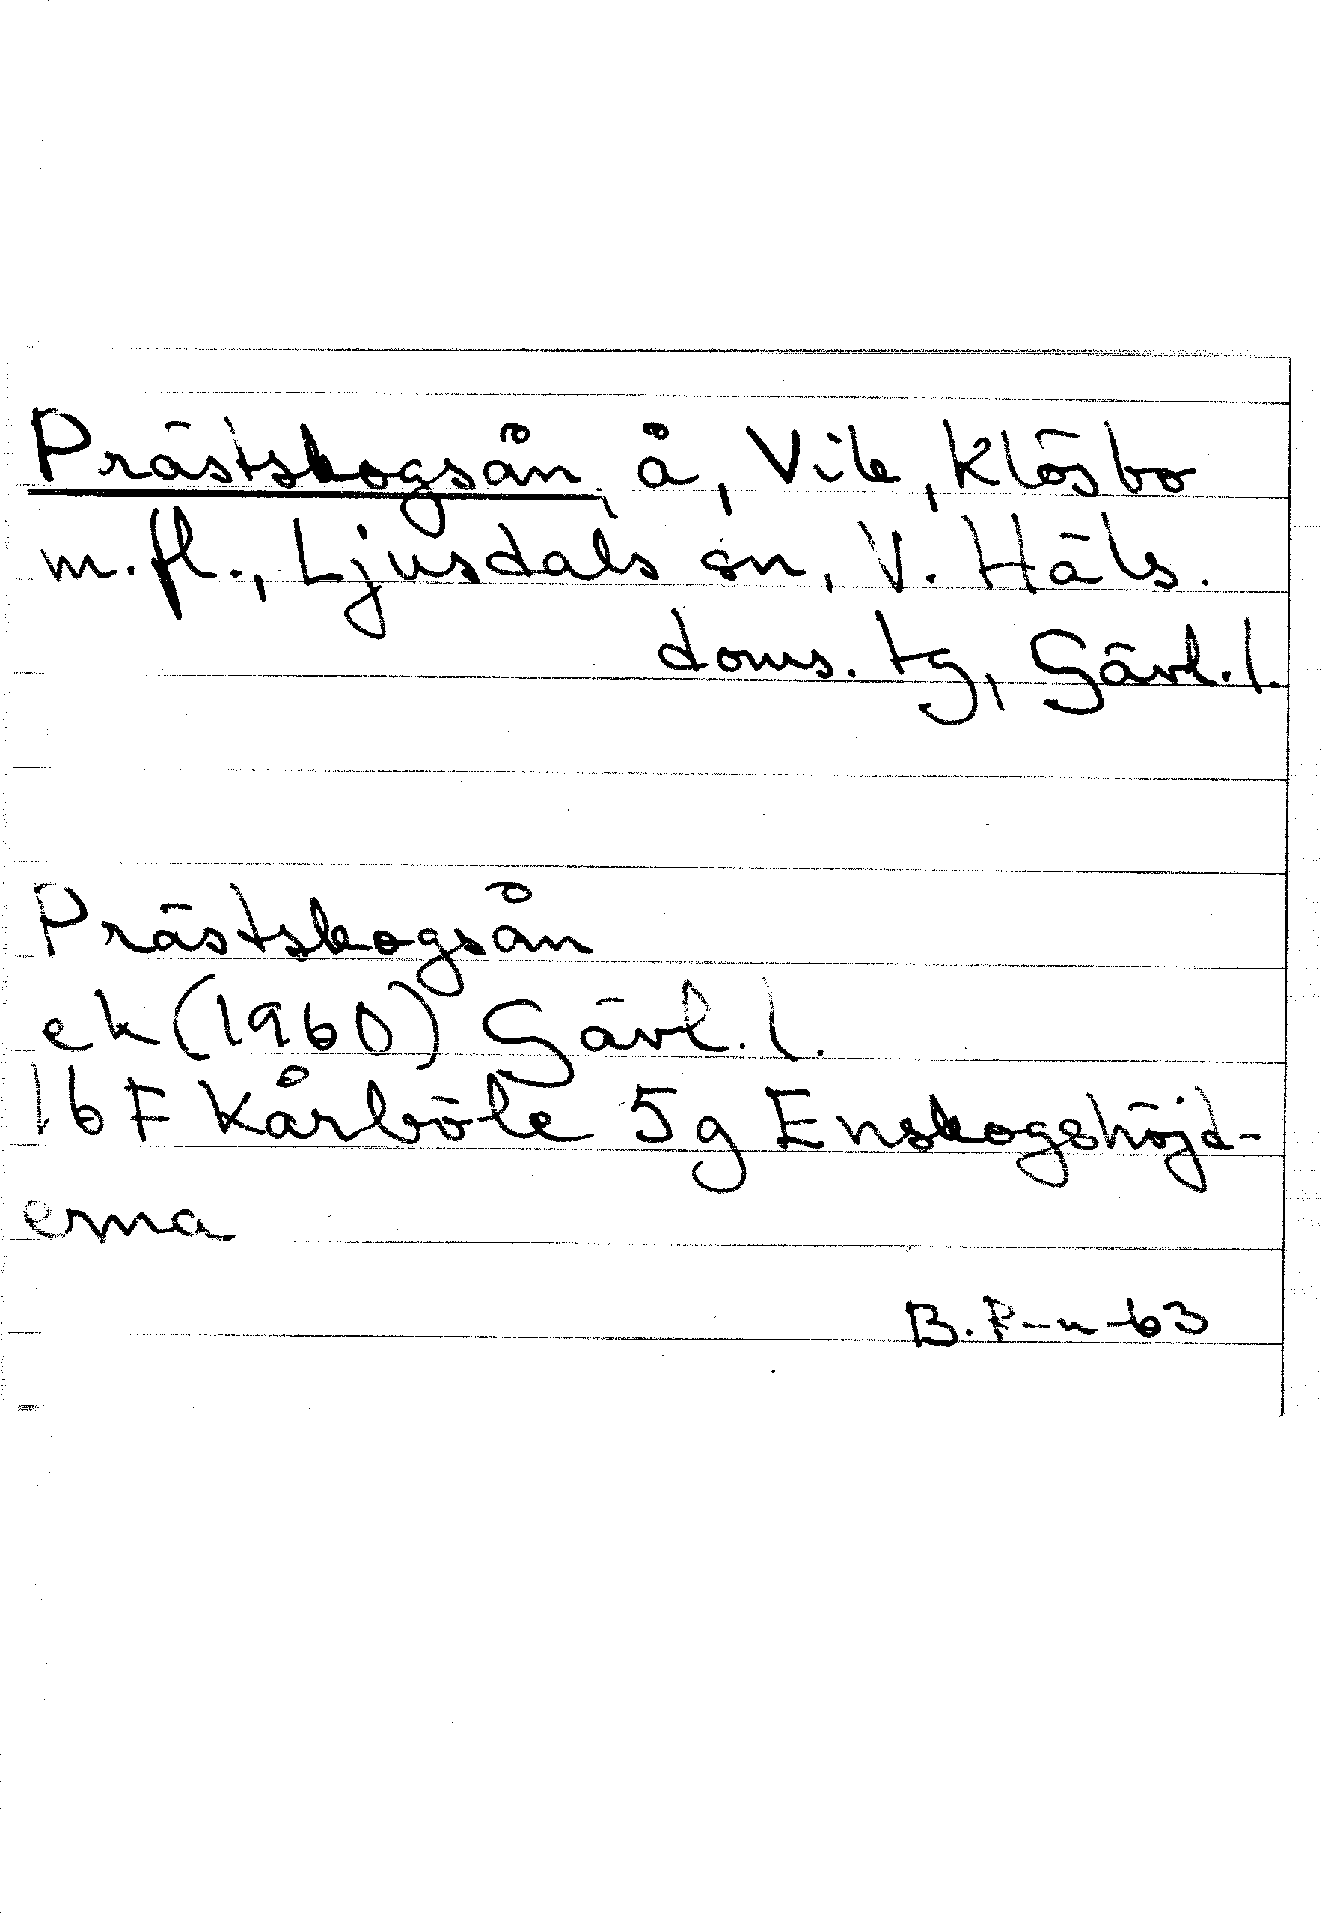 Prästskogsån, å, Vik, Klösbo
m.fl., Ljusdals sn, V. Häls.
doms. tg, Gävl. l.
Prästskogsån
ek (1960) Gävl. l.
16 F Kårböle 5g Enskogshöjd-
erna
B. P-n -63